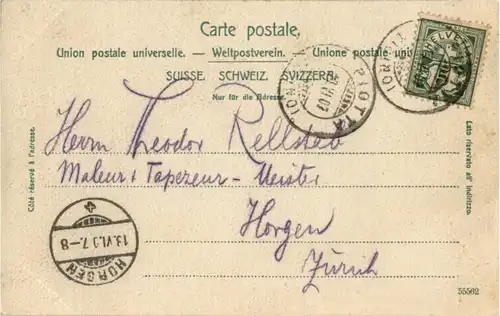 Carte postale.
Union postale universelle. — Weltpostverein. — Unione postale universale.
SUISSE. SCHWEIZ. SVIZZERA.
Nur für die Adresse.
Côté réservé à l'adresse.
Lato riservato all' indirizzo.
HELVETIA
PIOTTA
Herrn Theodor Rellsteb
Maleur & Tapezeur-Meister
Horgen
Zürich
HORGEN
13.VI.07.-8
55502